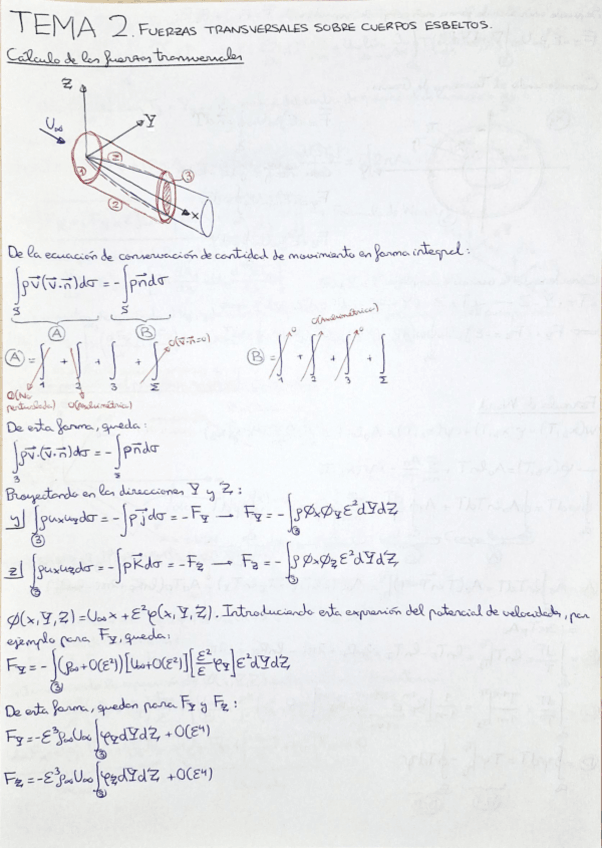 TEMA 2. FUERZAS TRANSVERSALES SOBRE CUERPOS ESBELTOS.
Cálculo de las fuerzas transversales
Z
U∞ Y
1 2 3
2 X
De la ecuación de conservación de cantidad de movimiento en forma integral:
∫_S ρv⃗(v⃗·n⃗)dσ = -∫_S pn⃗dσ
A B
A = ∫_1 + ∫_2 + ∫_3 + ∫_Σ 0(v⃗·n⃗=0) B = ∫_1 0 + ∫_2 0 + ∫_3 0 + ∫_Σ 0(axilsimétrica)
0(No perturbada) 0(axilsimétrica)
De esta forma, queda:
∫_3 ρv⃗·(v⃗·n⃗)dσ = -∫pn⃗dσ
Proyectando en las direcciones Y y Z:
y] ∫_3 ρu_x u_y dσ = -∫p j⃗ dσ = -F_Y → F_Y = -∫_3 ρϕ_xϕ_Y ε²dYdZ
z] ∫_3 ρu_x u_z dσ = -∫p k dσ = -F_Z → F_Z = -∫_3 ρϕ_xϕ_Z ε²dYdZ
ϕ(x,Y,Z) = U∞x + ε²φ(x,Y,Z). Introduciendo esta expresión del potencial de velocidades, por
ejemplo para F_Y, queda:
F_Y = -∫_3 (ρ∞+O(ε²))[U∞+O(ε²)][ε²/ε φ_Y]ε²dYdZ
De esta forma, quedan para F_Y y F_Z:
F_Y = -ε³ρ∞U∞∫_3 φ_Y dYdZ + O(ε⁴)
F_Z = -ε³ρ∞U∞∫_3 φ_Z dYdZ + O(ε⁴)